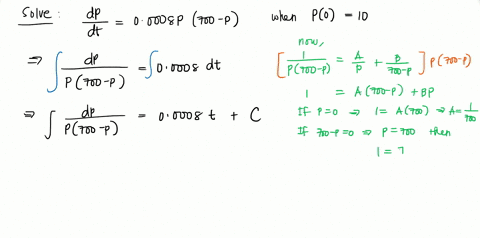 Solve: dp/dt = 0.0008P (700-P) when P(0) = 10
⇒ ∫ dp/P(700-P) = ∫ 0.0008 dt
⇒ ∫ dp/P(700-P) = 0.0008 t + C
now,
[ 1/P(700-P) = A/P + B/700-P ] P(700-P)
1 = A(700-P) + BP
If P=0 ⇒ 1= A(700) ⇒ A= 1/700
If 700-P=0 ⇒ P=700 then
1 = 7